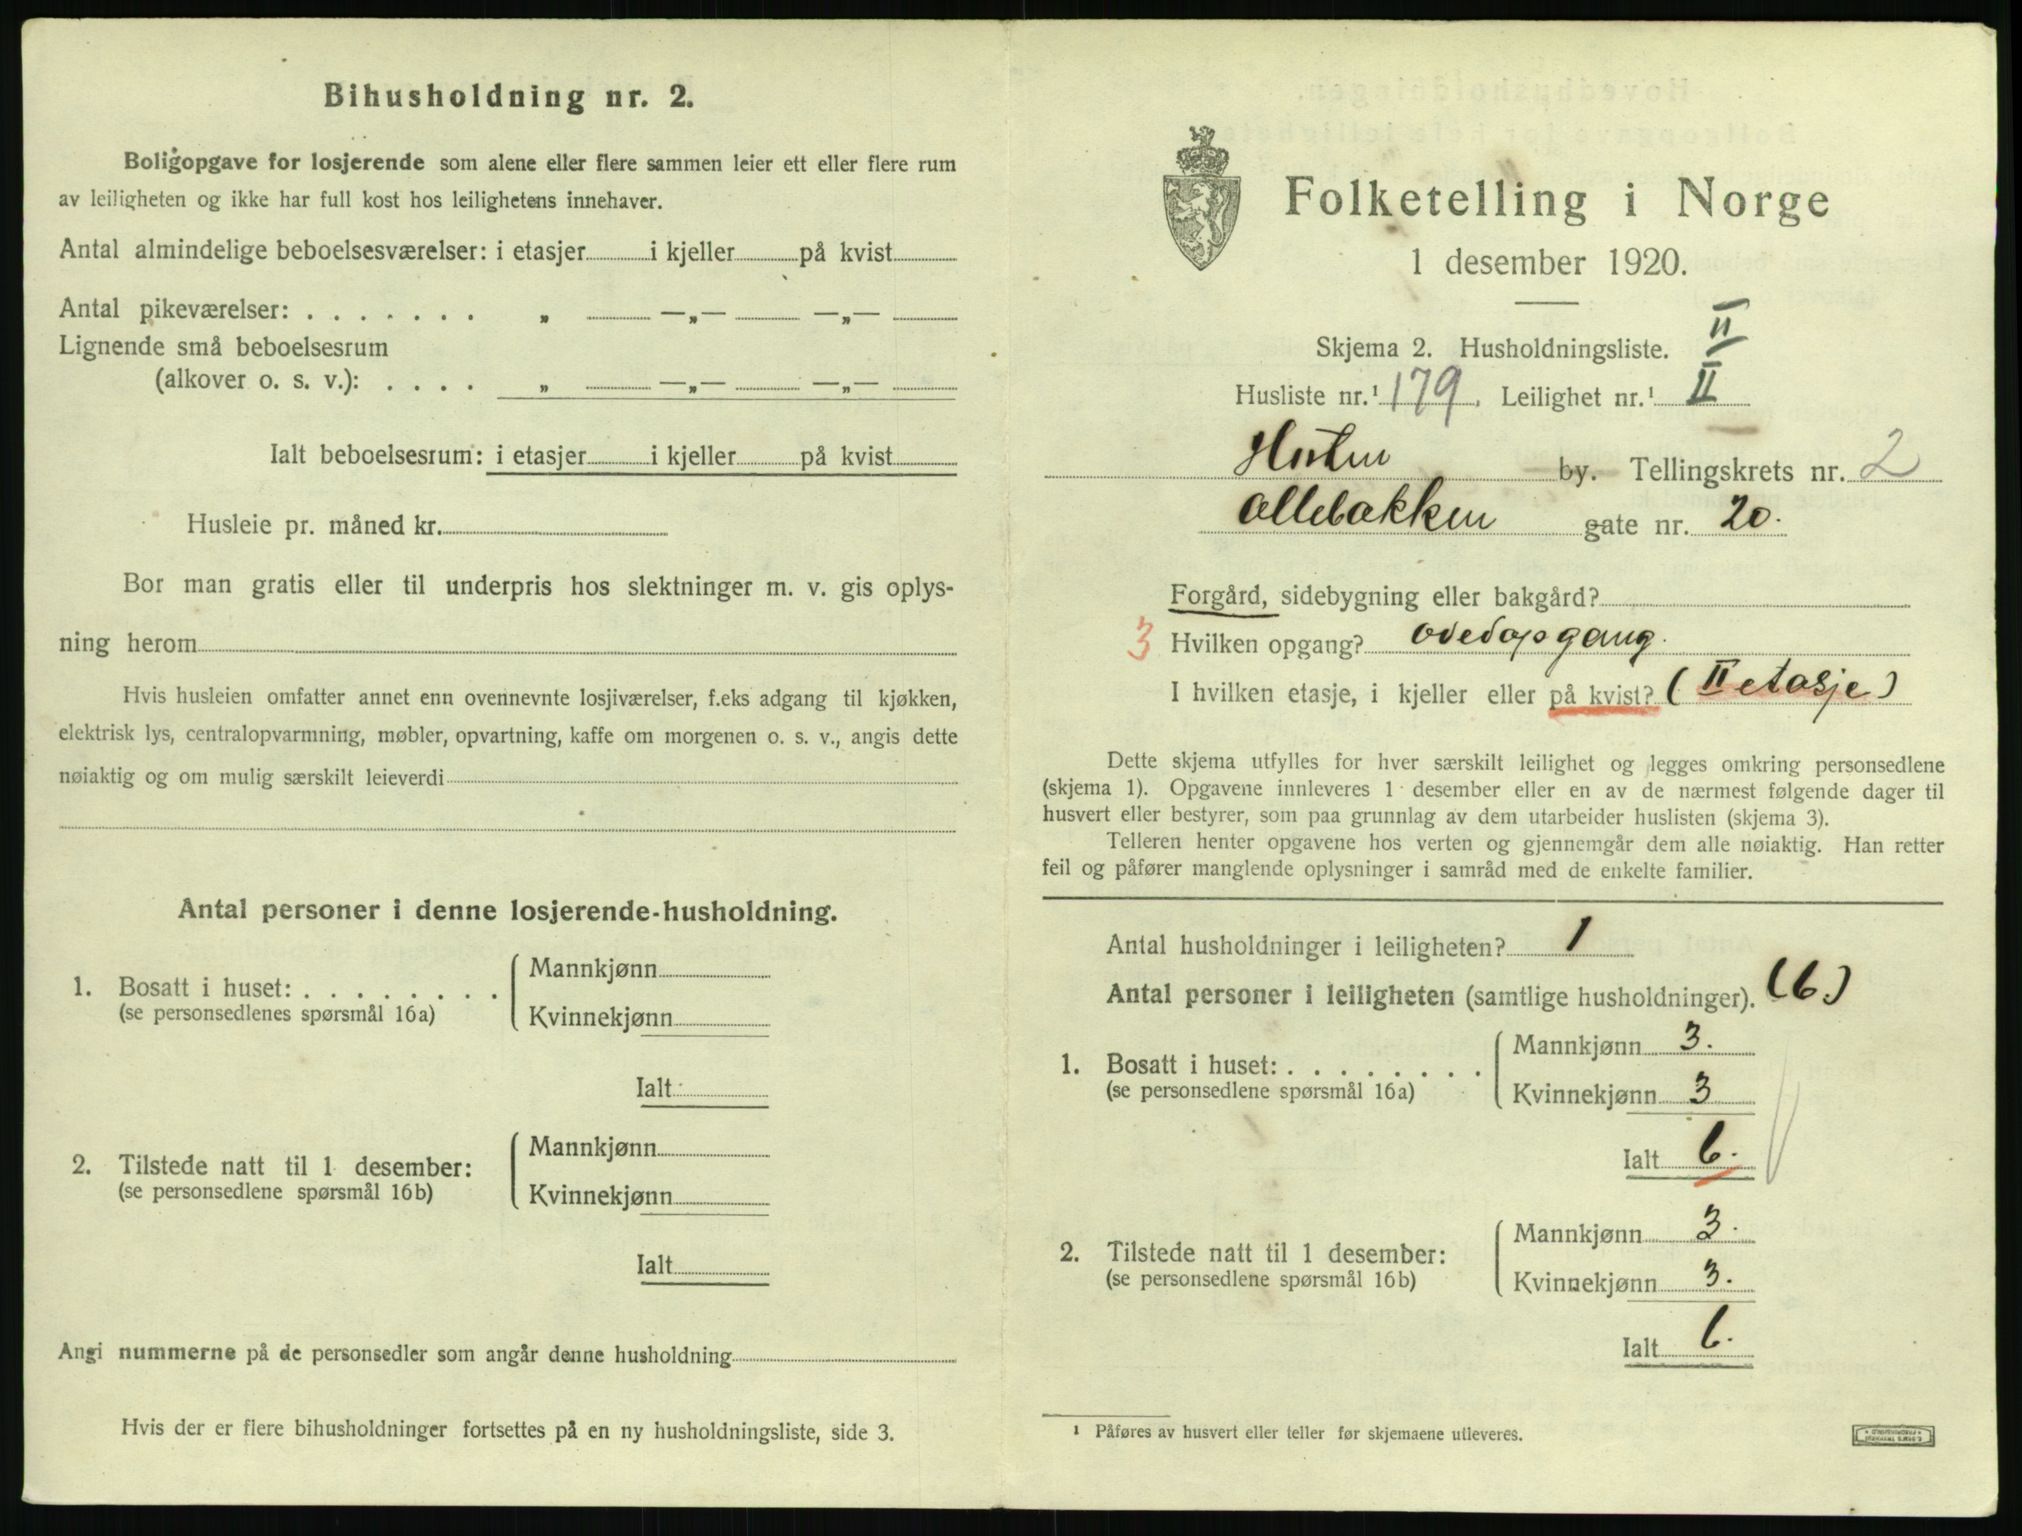 Bihusholdning nr. 2.
Boligopgave for losjerende som alene eller flere sammen leier ett eller flere rum
av leiligheten og ikke har full kost hos leilighetens innehaver.
Antal almindelige beboelsesværelser: i etasjer i kjeller på kvist
Antal pikeværelser: . . . . . . . „ —„— —„—
Lignende små beboelsesrum
(alkover o. s. v.): . . . . „ —„— —„—
Ialt beboelsesrum: i etasjer i kjeller på kvist
Husleie pr. måned kr.
Bor man gratis eller til underpris hos slektninger m. v. gis oplys-
ning herom
Hvis husleien omfatter annet enn ovennevnte losjiværelser, f.eks adgang til kjøkken,
elektrisk lys, centralopvarmning, møbler, opvartning, kaffe om morgenen o. s. v., angis dette
nøiaktig og om mulig særskilt leieverdi
Antal personer i denne losjerende-husholdning.
1. Bosatt i huset: . . . . . . . . Mannkjønn
(se personsedlenes spørsmål 16a) Kvinnekjønn
Ialt
2. Tilstede natt til 1 desember: Mannkjønn
(se personsedlene spørsmål 16b) Kvinnekjønn
Ialt
Angi nummerne på de personsedler som angår denne husholdning
Hvis der er flere bihusholdninger fortsettes på en ny husholdningsliste, side 3.
Folketelling i Norge
1 desember 1920.
II
Skjema 2. Husholdningsliste.
Husliste nr.¹ 179. Leilighet nr.¹ II
Horten by. Tellingskrets nr. 2
gate nr. 20.
Forgård, sidebygning eller bakgård?
3 Hvilken opgang? ovedopgang.
I hvilken etasje, i kjeller eller på kvist? (II etasje)
Dette skjema utfylles for hver særskilt leilighet og legges omkring personsedlene
(skjema 1). Opgavene innleveres 1 desember eller en av de nærmest følgende dager til
husvert eller bestyrer, som paa grunnlag av dem utarbeider huslisten (skjema 3).
Telleren henter opgavene hos verten og gjennemgår dem alle nøiaktig. Han retter
feil og påfører manglende oplysninger i samråd med de enkelte familier.
Antal husholdninger i leiligheten? 1
Antal personer i leiligheten (samtlige husholdninger). (6)
1. Bosatt i huset: . . . . . . . . Mannkjønn 3.
(se personsedlene spørsmål 16a) Kvinnekjønn 3
Ialt 6.
2. Tilstede natt til 1 desember: Mannkjønn 3.
(se personsedlene spørsmål 16b) Kvinnekjønn 3.
Ialt 6.
¹ Påføres av husvert eller teller før skjemaene utleveres.